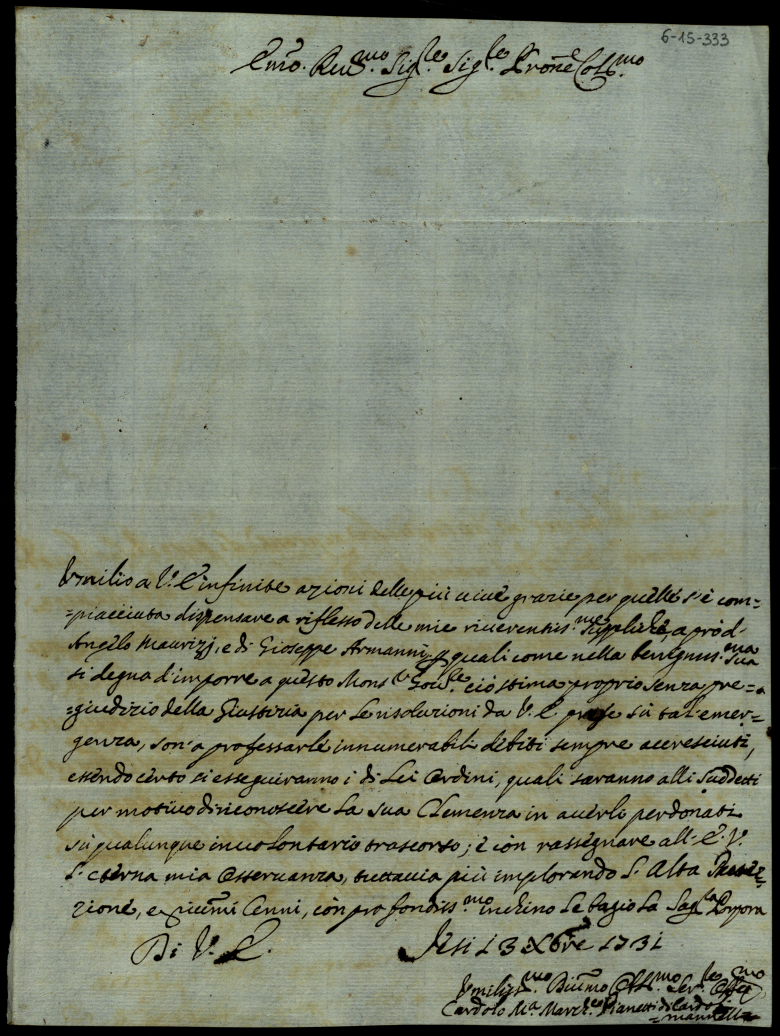 6-15-333
Emo. Reu.mo Sig.re Sig.re Prone Coll.mo
Vmilio a V. E. infinite azioni delle più viue grazie per quelle s'è com=
=piacciuta dispensare a riflesso delle mie riuerentis.me suppliche, a prò d'
Angelo Maurizj, e di Gioseppe Armanni, quali come nella benignis.ma sua
si degna d'imporre a questo Mons.r Gou.re ciò stima proprio senza pre=
=giudizio della Giustizia per le risoluzioni da V. E. prese sù tal' emer=
genza, son' a professarle innumerabili debiti sempre accresciuti,
essendo certo si esseguiranno i di Lei Ordini, quali saranno alli suddetti
per motiuo di riconoscere la sua Clemenza in auerli perdonati
sù qualunque inuolontario trascorso; e con rassegnare all' E. V.
l' eterna mia Osseruanza, tuttauia più implorando l' Alta
zione, e Cenni, con profondiss.mo inchino le bagio la Sag.ta Porpora
Di V. E. Jesi 13 Xbre 1731
Vmiliss.mo Diumo Obl.mo Ser.re
Cardolo M.a March.e Pianetti di Cardolo